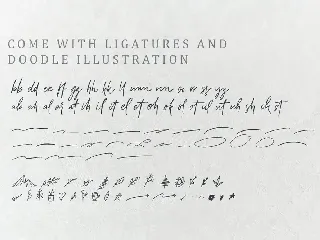 COME WITH LIGATURES AND
DOODLE ILLUSTRATION
bb dd ee ff gg hh kk ll mm nn oo rr ss yy
ab ah al at ch il it el et oh ok ol ot ul ut uh sh ck st